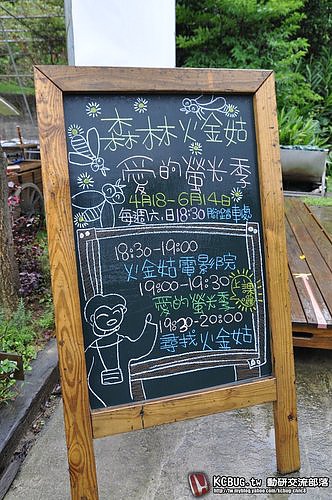 森林火金姑
愛的螢火季
4月18-6月14日
每週六、日18:30腳踏車處
18:30-19:00
火金姑電影院
19:00-19:30
愛的螢火季
19:30-20:00
尋找火金姑
KCBUG.tw 動研交流部落
http://tw.myblog.yahoo.com/kcbug_cnic8